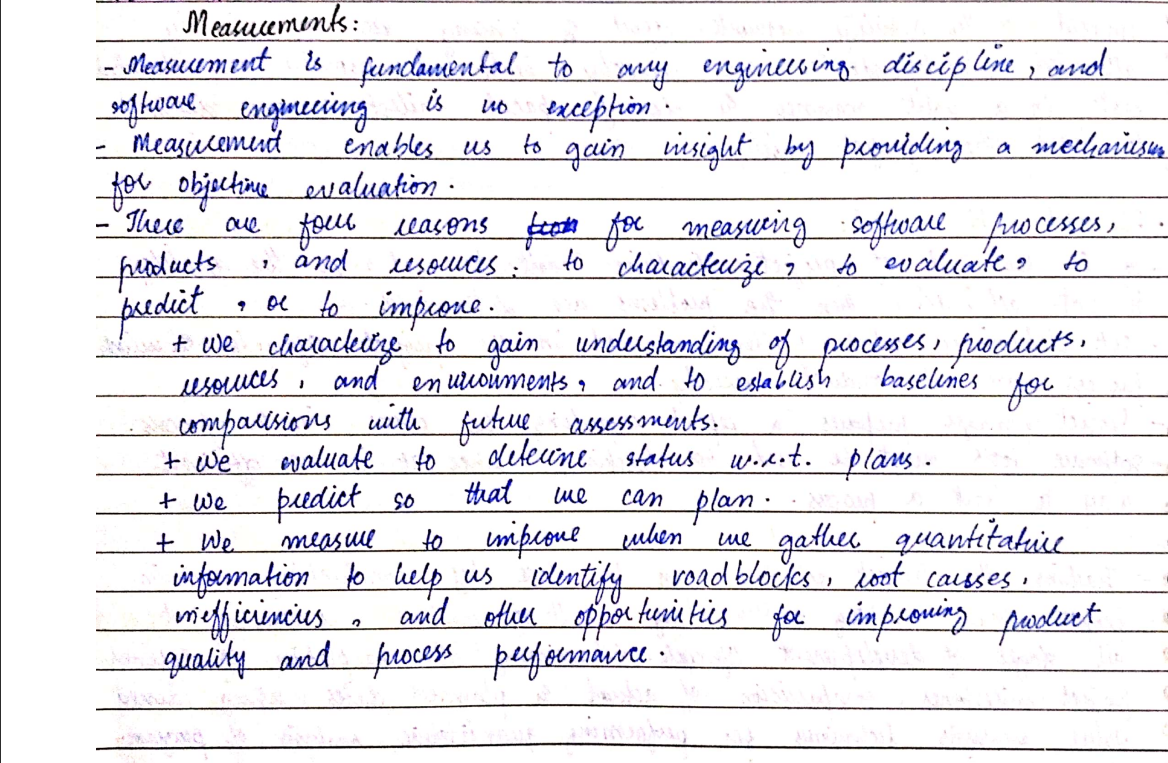 Measurements:
- Measurement is fundamental to any engineering discipline, and
software engineering is no exception.
- Measurement enables us to gain insight by providing a mechanism
for objective evaluation.
- There are four reasons for measuring software processes,
products, and resources: to characterize, to evaluate, to
predict, or to improve.
+ we characterize to gain understanding of processes, products,
resources, and environments, and to establish baselines for
comparisions with future assessments.
+ we evaluate to deterine status w.r.t. plans.
+ we predict so that we can plan.
+ We measure to improve when we gather quantitative
information to help us identify roadblocks, root causses,
inefficiencies, and other opportunities for improving product
quality and process performance.